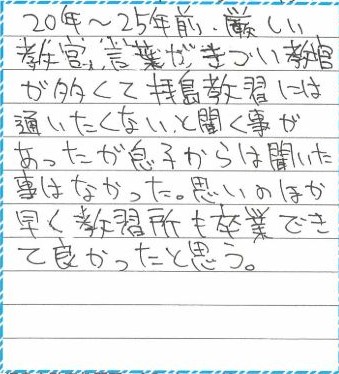 20年～25年前、厳しい
教官、言葉がきつい教官
が多くて拝島教習には
通いたくないと聞く事が
あったが息子からは聞いた
事はなかった。思いのほか
早く教習所も卒業でき
て良かったと思う。